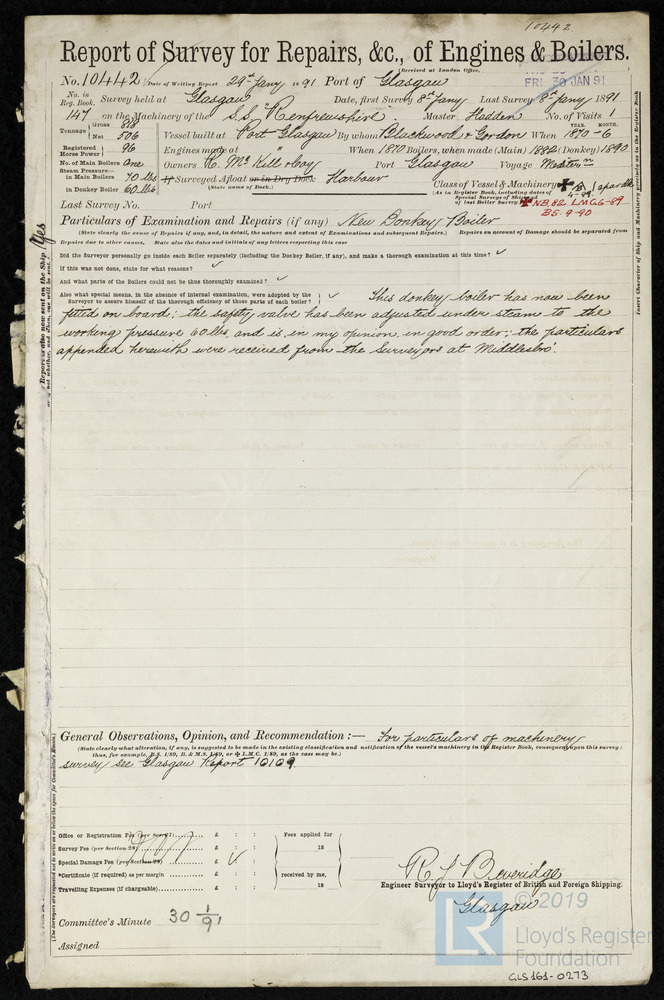 10442
Report of Survey for Repairs, &c., of Engines & Boilers.
(Received at London Office,
No. 10442 Date of Writing Report 29th Jany 1891 Port of Glasgow
FRI 30 JAN 91
No. in Reg. Book. Survey held at Glasgow Date, first Survey 8th Jany Last Survey 8th Jany 1891
147 on the Machinery of the S.S. "Renfrewshire" Master Hadden No. of Visits 1
Tonnage Gross 818 Net 506 Vessel built at Port Glasgow By whom Blackwood & Gordon When YEAR. MONTH. 1870-6
Registered Horse Power 96 Engines made at When 1870 Boilers, when made (Main) 1882 (Donkey) 1890
No. of Main Boilers One Owners R. McKill & Coy Port Glasgow Voyage Western
Steam Pressure— in Main Boilers 70 lbs If Surveyed Afloat or in Dry Dock Harbour
(State name of Dock.)
in Donkey Boiler 60 lbs
Class of Vessel & Machinery
(As in Register Book, including dates of Special Surveys of Ship and of last Boiler Survey)
4-89
NB.82 LMC.6-89
BS. 9-90
Last Survey No. Port
Particulars of Examination and Repairs (if any) New Donkey Boiler
(State clearly the cause of Repairs if any, and, in detail, the nature and extent of Examinations and subsequent Repairs.) Repairs on account of Damage should be separated from
Repairs due to other causes. State also the dates and initials of any letters respecting this case
Did the Surveyor personally go inside each Boiler separately (including the Donkey Boiler, if any), and make a thorough examination at this time? ✓
If this was not done, state for what reasons? ✓
And what parts of the Boilers could not be thus thoroughly examined? ✓
Also what special means, in the absence of internal examination, were adopted by the Surveyor to assure himself of the thorough efficiency of those parts of each boiler? ✓ This donkey boiler has now been
fitted on board; the safety valve has been adjusted under steam to the
working pressure 60 lbs, and is, in my opinion, in good order; the particulars
appended herewith were received from the Surveyors at Middlesbro'.
Insert Character of Ship and Machinery precisely as in the Register Book
Yes
General Observations, Opinion, and Recommendation:— For particulars of machinery
(State clearly what alteration, if any, is suggested to be made in the existing classification and notification of the vessel's machinery in the Register Book, consequent upon this survey:
thus, for example, B.S. 1/89, B. & M.S. 1/89, or L.M.C. 1/89, as the case may be.)
survey see Glasgow Report 10109.
Office or Registration Fee (per Sec. 27) £ : :
Survey Fee (per Section 28) £ : :
Special Damage Fee (per Section 28) £ : :
*Certificate (if required) as per margin £ : :
Travelling Expenses (if chargeable) £ : :
Fees applied for
18
received by me,
18
R J Beveridge
Engineer Surveyor to Lloyd's Register of British and Foreign Shipping.
Glasgow
Committee's Minute 30 1/91
Assigned
© 2019
LR
Lloyd's Register
Foundation
GLS161-0273